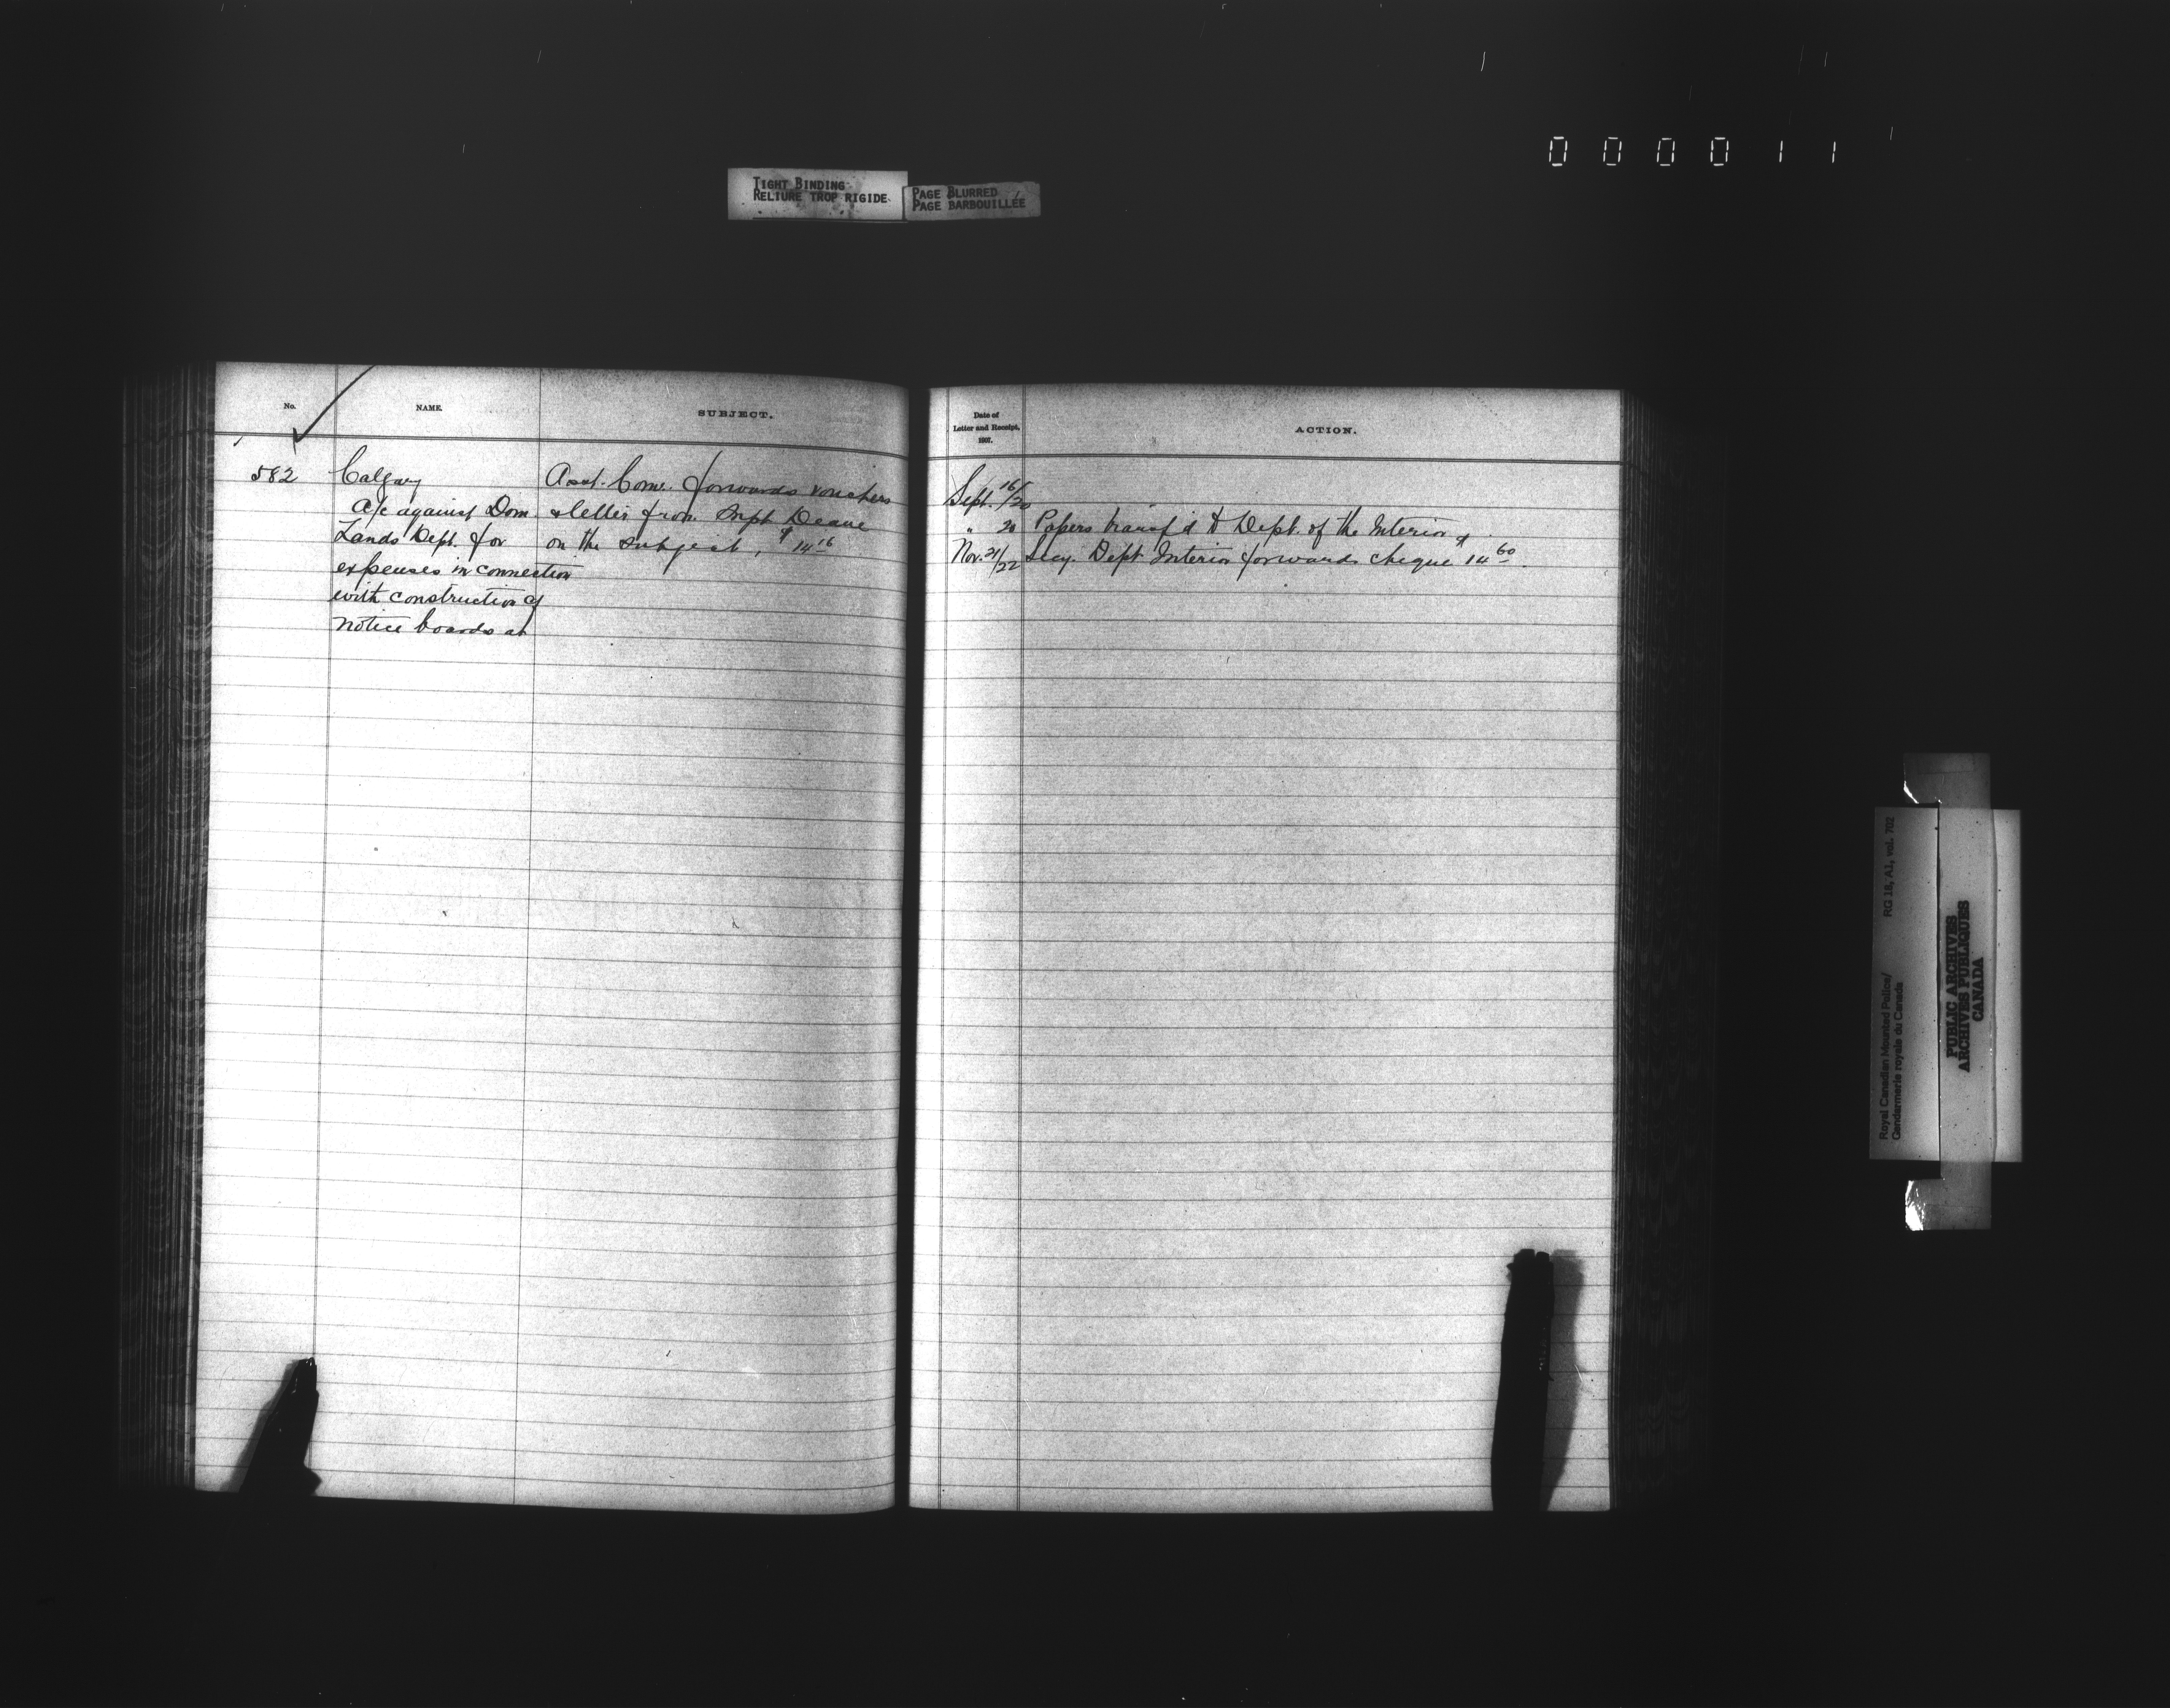 000011
TIGHT BINDING
RELIURE TROP RIGIDE
PAGE BLURRED
PAGE BARBOUILLÉE
No.
NAME.
SUBJECT.
582
Calgary
a/c against Dom.
Lands Dept. for
expenses in connection
with construction of
notice boards at
Asst. Comr. forwards vouchers
& letter from Supt Deane
on the subject, $14 16
Date of
Letter and Receipt,
1907.
ACTION.
Sept. 16/20
" 20 Papers transf'd to Dept. of the Interior
Nov. 21/22 Secy. Dept Interior forwards cheque $14 60.
Royal Canadian Mounted Police/
Gendarmerie royale du Canada
RG 18, A1, vol. 702
PUBLIC ARCHIVES
ARCHIVES PUBLIQUES
CANADA